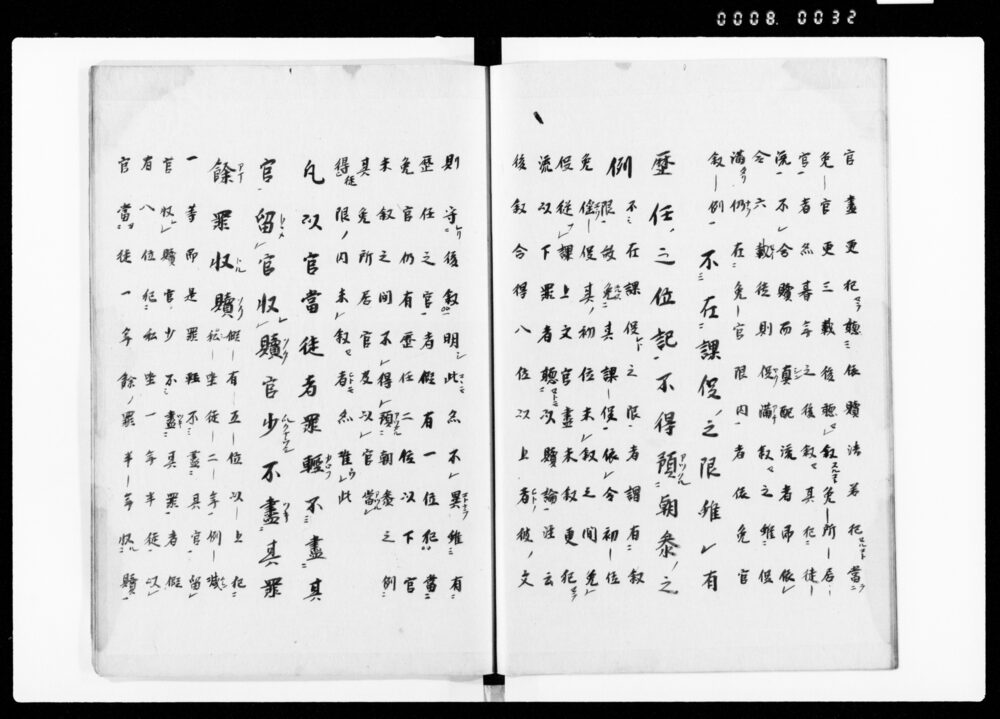 0008. 0032
官盡更犯聽依贖法若犯當
免官更三載後聽叙免所居
官者亦暮年之後叙其犯徒
流不合贖而真配流者即依
令六載徒則役滿叙之雖役
滿仍在免官限内者依免官
叙例不在課役之限雖有
歷任之位記不得預朝參之
例不在課役之限者謂有叙
限故免其課役依令初位
免徭役其初位未叙之間免
役從課上文官盡未叙更犯
流以下罪者聽以贖論注云
後叙合得八位以上者彼文
則守後叙明此亦不異雖有
歷任之官者假有一位犯當
免官仍有歷任二位以下官
未叙之間不得預朝參之例
其免所居官及以官當
徒限内未叙者亦准此
凡以官當徒者罪輕不盡其
官留官收贖官少不盡其罪
餘罪收贖假有五位以上犯
私坐徒二年例減
一等即是罪輕不盡其官留
官收贖官少不盡其罪者假
有八位犯私坐一年半徒以
官當徒一年餘罪半年收贖